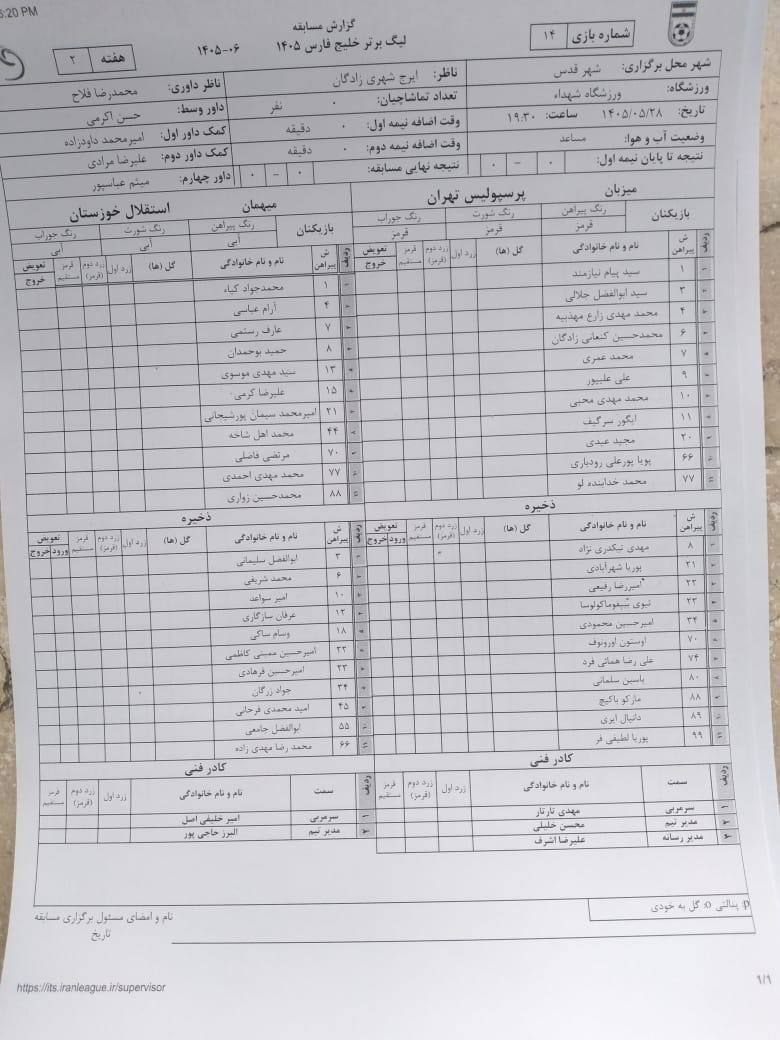 5:20 PM
گزارش مسابقه
لیگ برتر خلیج فارس ۱۴۰۵ ۱۴۰۵-۰۶
شماره بازی ۱۴
هفته ۲
شهر محل برگزاری: شهر قدس
ناظر: ایرج شهری زادگان
ناظر داوری: محمدرضا فلاح
ورزشگاه: ورزشگاه شهداء
تعداد تماشاچیان: ۰ نفر
داور وسط: حسن اکرمی
تاریخ: ۱۴۰۵/۰۵/۲۸ ساعت: ۱۹:۳۰
وقت اضافه نیمه اول: ۰ دقیقه
کمک داور اول: امیرمحمد داودزاده
وضعیت آب و هوا: مساعد
وقت اضافه نیمه دوم: ۰ دقیقه
کمک داور دوم: علیرضا مرادی
نتیجه تا پایان نیمه اول: ۰ - ۰
نتیجه نهایی مسابقه: ۰ - ۰
داور چهارم: میثم عباسپور
میزبان پرسپولیس تهران
بازیکنان رنگ پیراهن رنگ شورت رنگ جوراب
قرمز قرمز قرمز
ردیف ش پیراهن نام و نام خانوادگی گل (ها) زرد اول زرد دوم (قرمز) قرمز مستقیم تعویض خروج
۱ سید پیام نیازمند
۳ سید ابوالفضل جلالی
۴ محمد مهدی زارع مهذبیه
۶ محمدحسین کنعانی زادگان
۷ محمد عمری
۹ علی علیپور
۱۰ محمد مهدی محبی
۱۱ ایگور سرگیف
۲۰ مجید عیدی
۶۶ پویا پورعلی رودباری
۷۷ محمد خدابنده لو
ذخیره
ردیف ش پیراهن نام و نام خانوادگی گل (ها) زرد اول زرد دوم (قرمز) قرمز مستقیم تعویض ورود خروج
۸ مهدی تیکدری نژاد
۲۱ پوریا شهرآبادی
۲۲ امیررضا رفیعی
۲۳ تیوی بیفوماکولوسا
۳۴ امیرحسین محمودی
۷۰ اوستون اورونوف
۷۴ علی رضا همائی فرد
۸۰ یاسین سلمانی
۸۸ مارکو باکیچ
۸۹ دانیال ایری
۹۹ پوریا لطیفی فر
کادر فنی
ردیف سمت نام و نام خانوادگی زرد اول زرد دوم (قرمز) قرمز مستقیم
۱ سرمربی مهدی تارتار
۲ مدیر تیم محسن خلیلی
۳ مدیر رسانه علیرضا اشرف
میهمان استقلال خوزستان
بازیکنان رنگ پیراهن رنگ شورت رنگ جوراب
آبی آبی آبی
ردیف ش پیراهن نام و نام خانوادگی گل (ها) زرد اول زرد دوم (قرمز) قرمز مستقیم تعویض خروج
۱ محمدجواد کیاء
۴ آرام عباسی
۷ عارف رستمی
۸ حمید بوحمدان
۱۳ سید مهدی موسوی
۱۵ علیرضا کرمی
۲۱ امیرمحمد سیمان پورشیجانی
۴۴ محمد اهل شاخه
۷۰ مرتضی فاضلی
۷۷ محمد مهدی احمدی
۸۸ محمدحسین زواری
ذخیره
ردیف ش پیراهن نام و نام خانوادگی گل (ها) زرد اول زرد دوم (قرمز) قرمز مستقیم تعویض ورود خروج
۳ ابوالفضل سلیمانی
۶ محمد شریفی
۱۰ امیر سواعد
۱۲ عرفان سازگاری
۱۸ وسام ساکی
۲۲ امیرحسین ممبینی کاظمی
۲۳ امیرحسین فرهادی
۳۴ جواد زرگان
۴۵ امید محمدی فرحانی
۵۵ ابوالفضل جامعی
۶۶ محمد رضا مهدی زاده
کادر فنی
ردیف سمت نام و نام خانوادگی زرد اول زرد دوم (قرمز) قرمز مستقیم
۱ سرمربی امیر خلیفی اصل
۲ مدیر تیم البرز حاجی پور
p: پنالتی o: گل به خودی
نام و امضای مسئول برگزاری مسابقه
تاریخ
https://its.iranleague.ir/supervisor
1/1